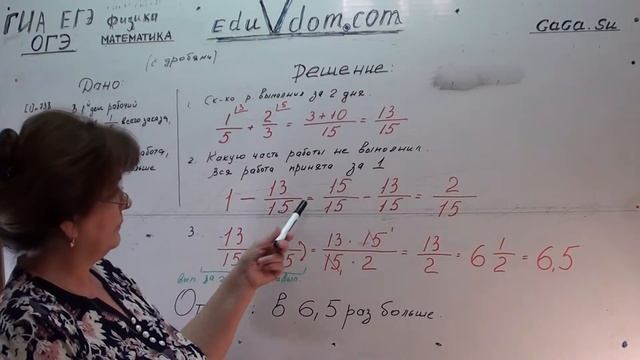 ГИА ЕГЭ физика
ОГЭ МАТЕМАТИКА
eduVdom.com
GaGa.Su
(с дробями)
Дано:
Решение:
В 1й день рабочий
всего заказа,
работа,
больше
1. Ск-ко р. выполнил за 2 дня.
1/5 + 2/3 = (3+10)/15 = 13/15
2. Какую часть работы не выполнил.
Вся работа принята за 1
1 − 13/15 = 15/15 − 13/15 = 2/15
3. 13/15 = (13 · 15)/(15 · 2) = 13/2 = 6 1/2 = 6,5
вып за
в 6,5 раз больше.